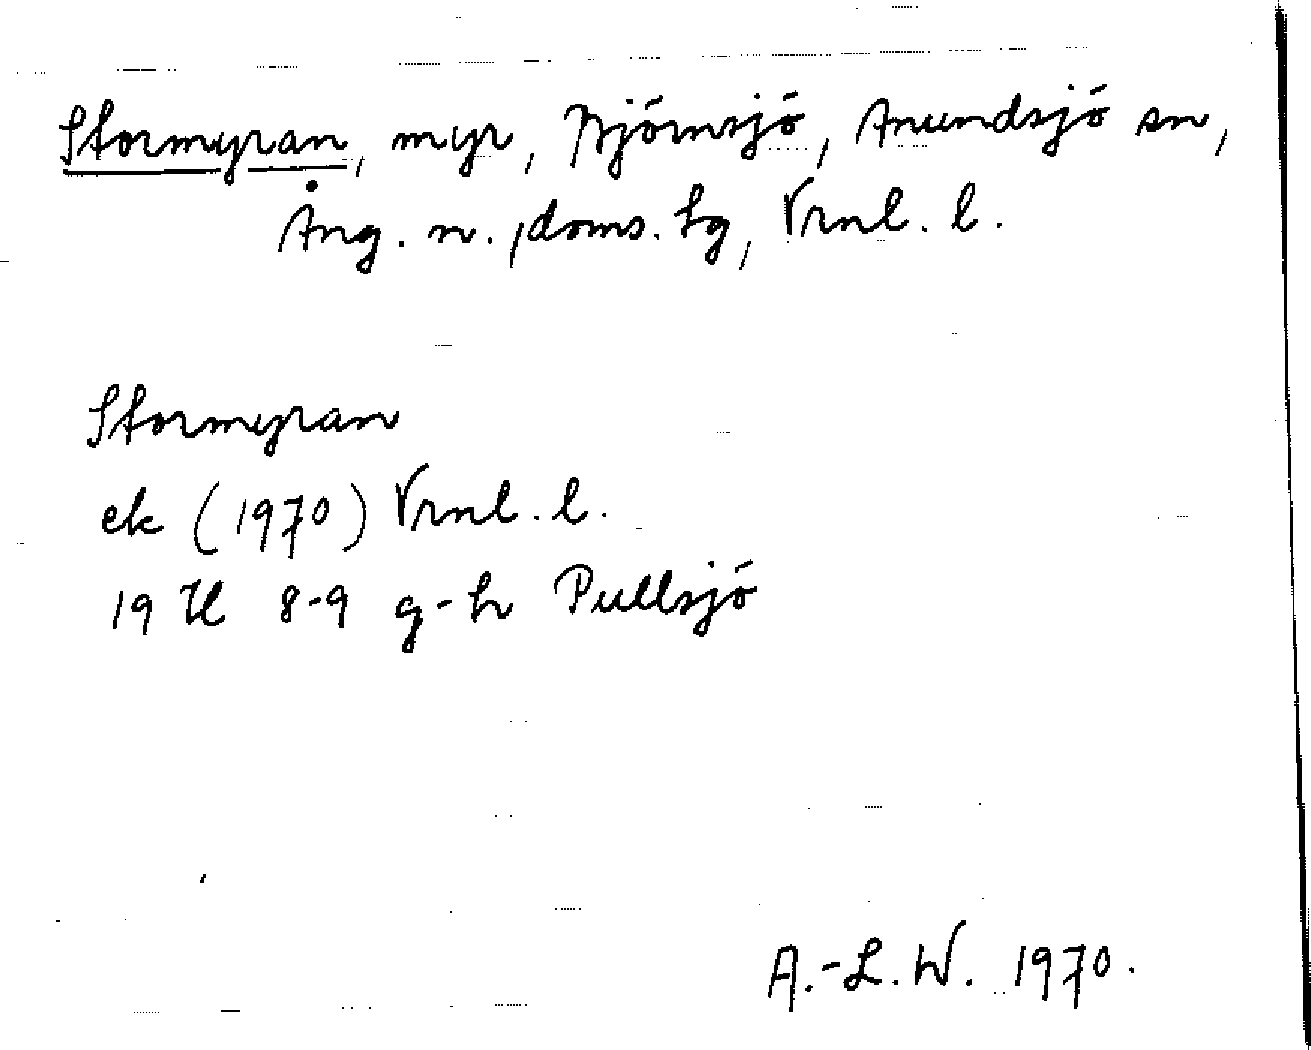 Stormyran, myr, Björnsjö, Anundsjö sn,
Ång. n. doms. hg, Vrnl. l.
Stormyran
ek (1970) Vrnl. l.
19 H 8-9 g-h Pullsjö
A.-L. W. 1970.